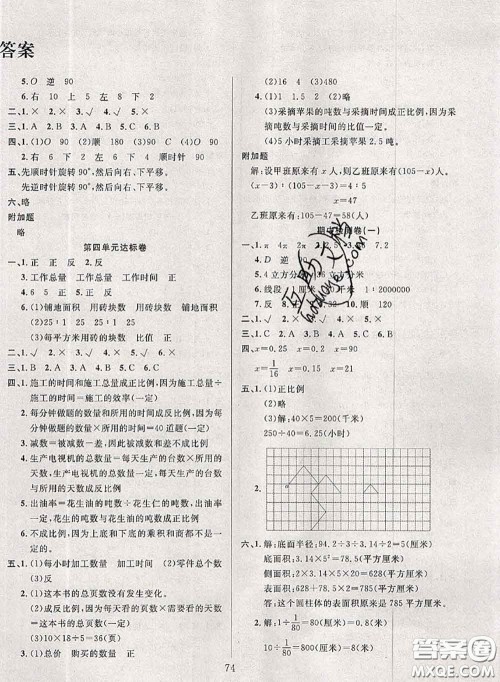 答案
5.O 逆 90
6.右 10 上 5 左 8 下 2
二、1.√ 2.× 3.√ 4.√ 5.×
三、1.A 2.B 3.B 4.A
四、1.(1)O (2)顺 180 (3)O 90
2.右 6 下 2 左 6 上 4 顺时针 90
五、先顺时针旋转 90°,然后向右、下平移。
先逆时针旋转 90°,然后向右、下平移。
六、略
附加题
略
第四单元达标卷
一、1.正 正 反 正
3.工作总量 工作总量 工作时间 正
4.6 5.正 正 反
6.(1)铺地面积 用砖块数 用砖块数 铺地面积
(2)25∶1 25∶1 25∶1
(3)每平方米用砖的块数 正
二、1.√ 2.√ 3.√ 4.√ 5.×
三、1.A 2.A 3.B 4.A 5.B
四、1.施工的时间和施工总量成正比例,因为施工总量÷
施工的时间=施工的效率(一定)
2.每分钟做题的数量和所用的时间成反比例,因为
每分钟做题的数量×所用的时间=40道题(一定)
3.减数=被减数-差(一定),减数与差不成比例
4.生产电视机的总数量=每天生产的台数×所用的
天数(生产电视机的总数一定),每天生产的台数
与所用的天数成反比例
5.出油率=花生油的吨数÷花生仁的吨数,出油率
一定,花生油的吨数与花生的吨数成正比例
6.因为上底和下底的乘积和面积都不一
定,所以不成比例
五、1.(1)每小时加工数量 加工时间 (2)零件总个数
(3)反
2.(1)这本书的总页数没有发生变化。
(2)成反比例,因为每天看的页数×所看的天数=
这本书的总页数(一定)
(3)10×18÷5=36(页)
3.(1)总价 购买的数量 正
(2)16 4 (3)580
4.(1)1.5 2 2.5 3 (2)略
(3)采摘苹果的吨数与采摘时间成正比例,因为采
摘吨数与采摘时间的比值一定。
(4)5小时采摘工采摘苹果 2.5 吨。
附加题
解:设甲班原有 x 人,则乙班原有(105-x)人。
乙班原有:105-47=58(人)
期中检测卷(一)
2.D 逆 90
5.线段 1∶2000000
二、1.√ 2.× 3.√ 4.× 5.×
四、x=0.25 x=0.15 x=8
x=1/16 x=0.25 x=4
五、1.(1)正比例
(2)略
(3)解:75÷0.3=250(千米)
250÷40=6.25
2.
六、1.解:底面半径:94.2÷3÷3.14÷2=5(厘米)
底面积:3.14×5×5=78.5(平方厘米)
侧面积:2×3.14×5×20=628(平方厘米)
表面积:628+78.5×2=785(平方厘米)
答:这个圆柱体的表面积原来是 785 平方厘米。
2.解:10÷1/80=800(厘米)=8(米)
5÷1/80=400(厘米)=4(米)
74